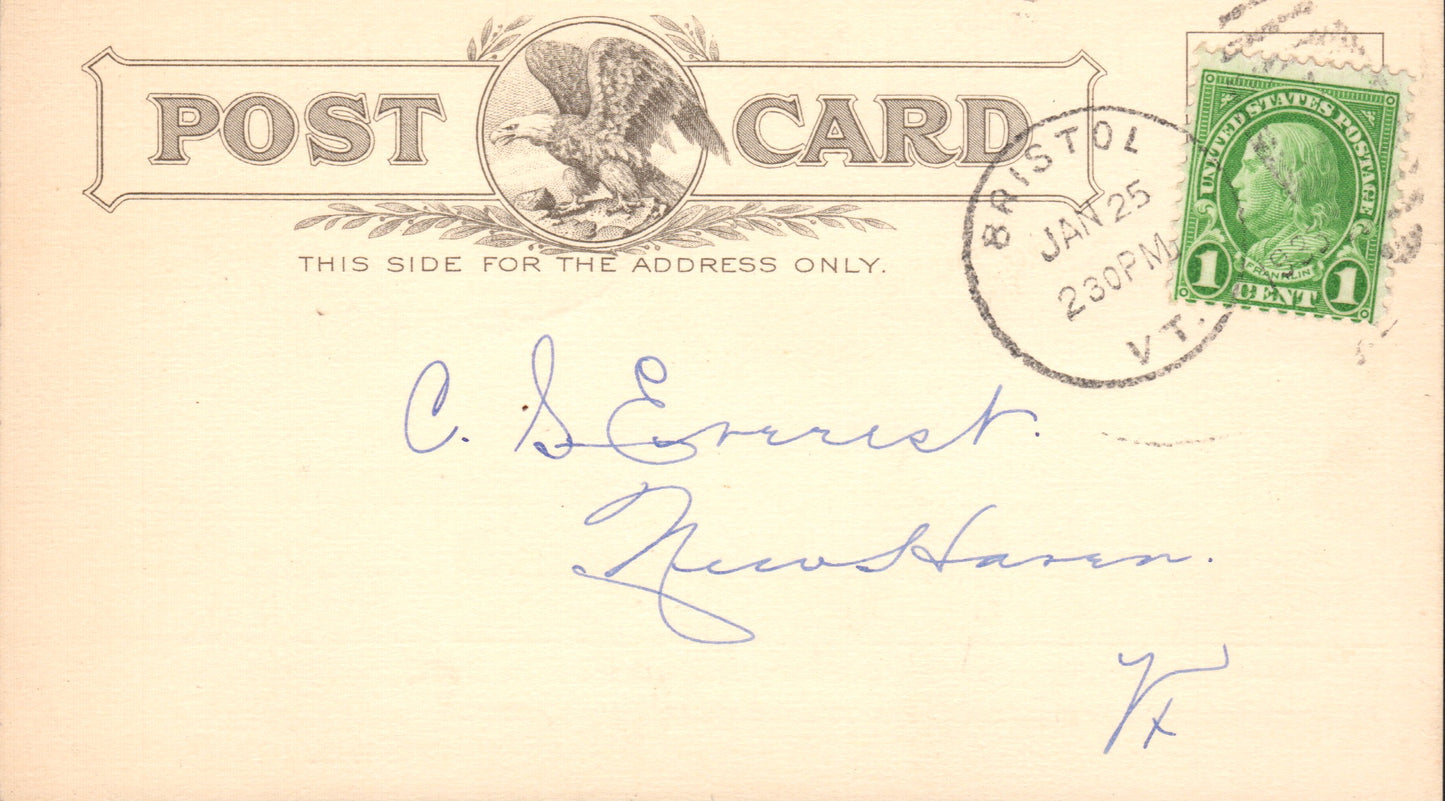 POST CARD
THIS SIDE FOR THE ADDRESS ONLY.
BRISTOL
JAN 25
2 30 PM
VT.
UNITED STATES POSTAGE
FRANKLIN
1 CENT 1
C. S Everest.
New Haven.
Vt